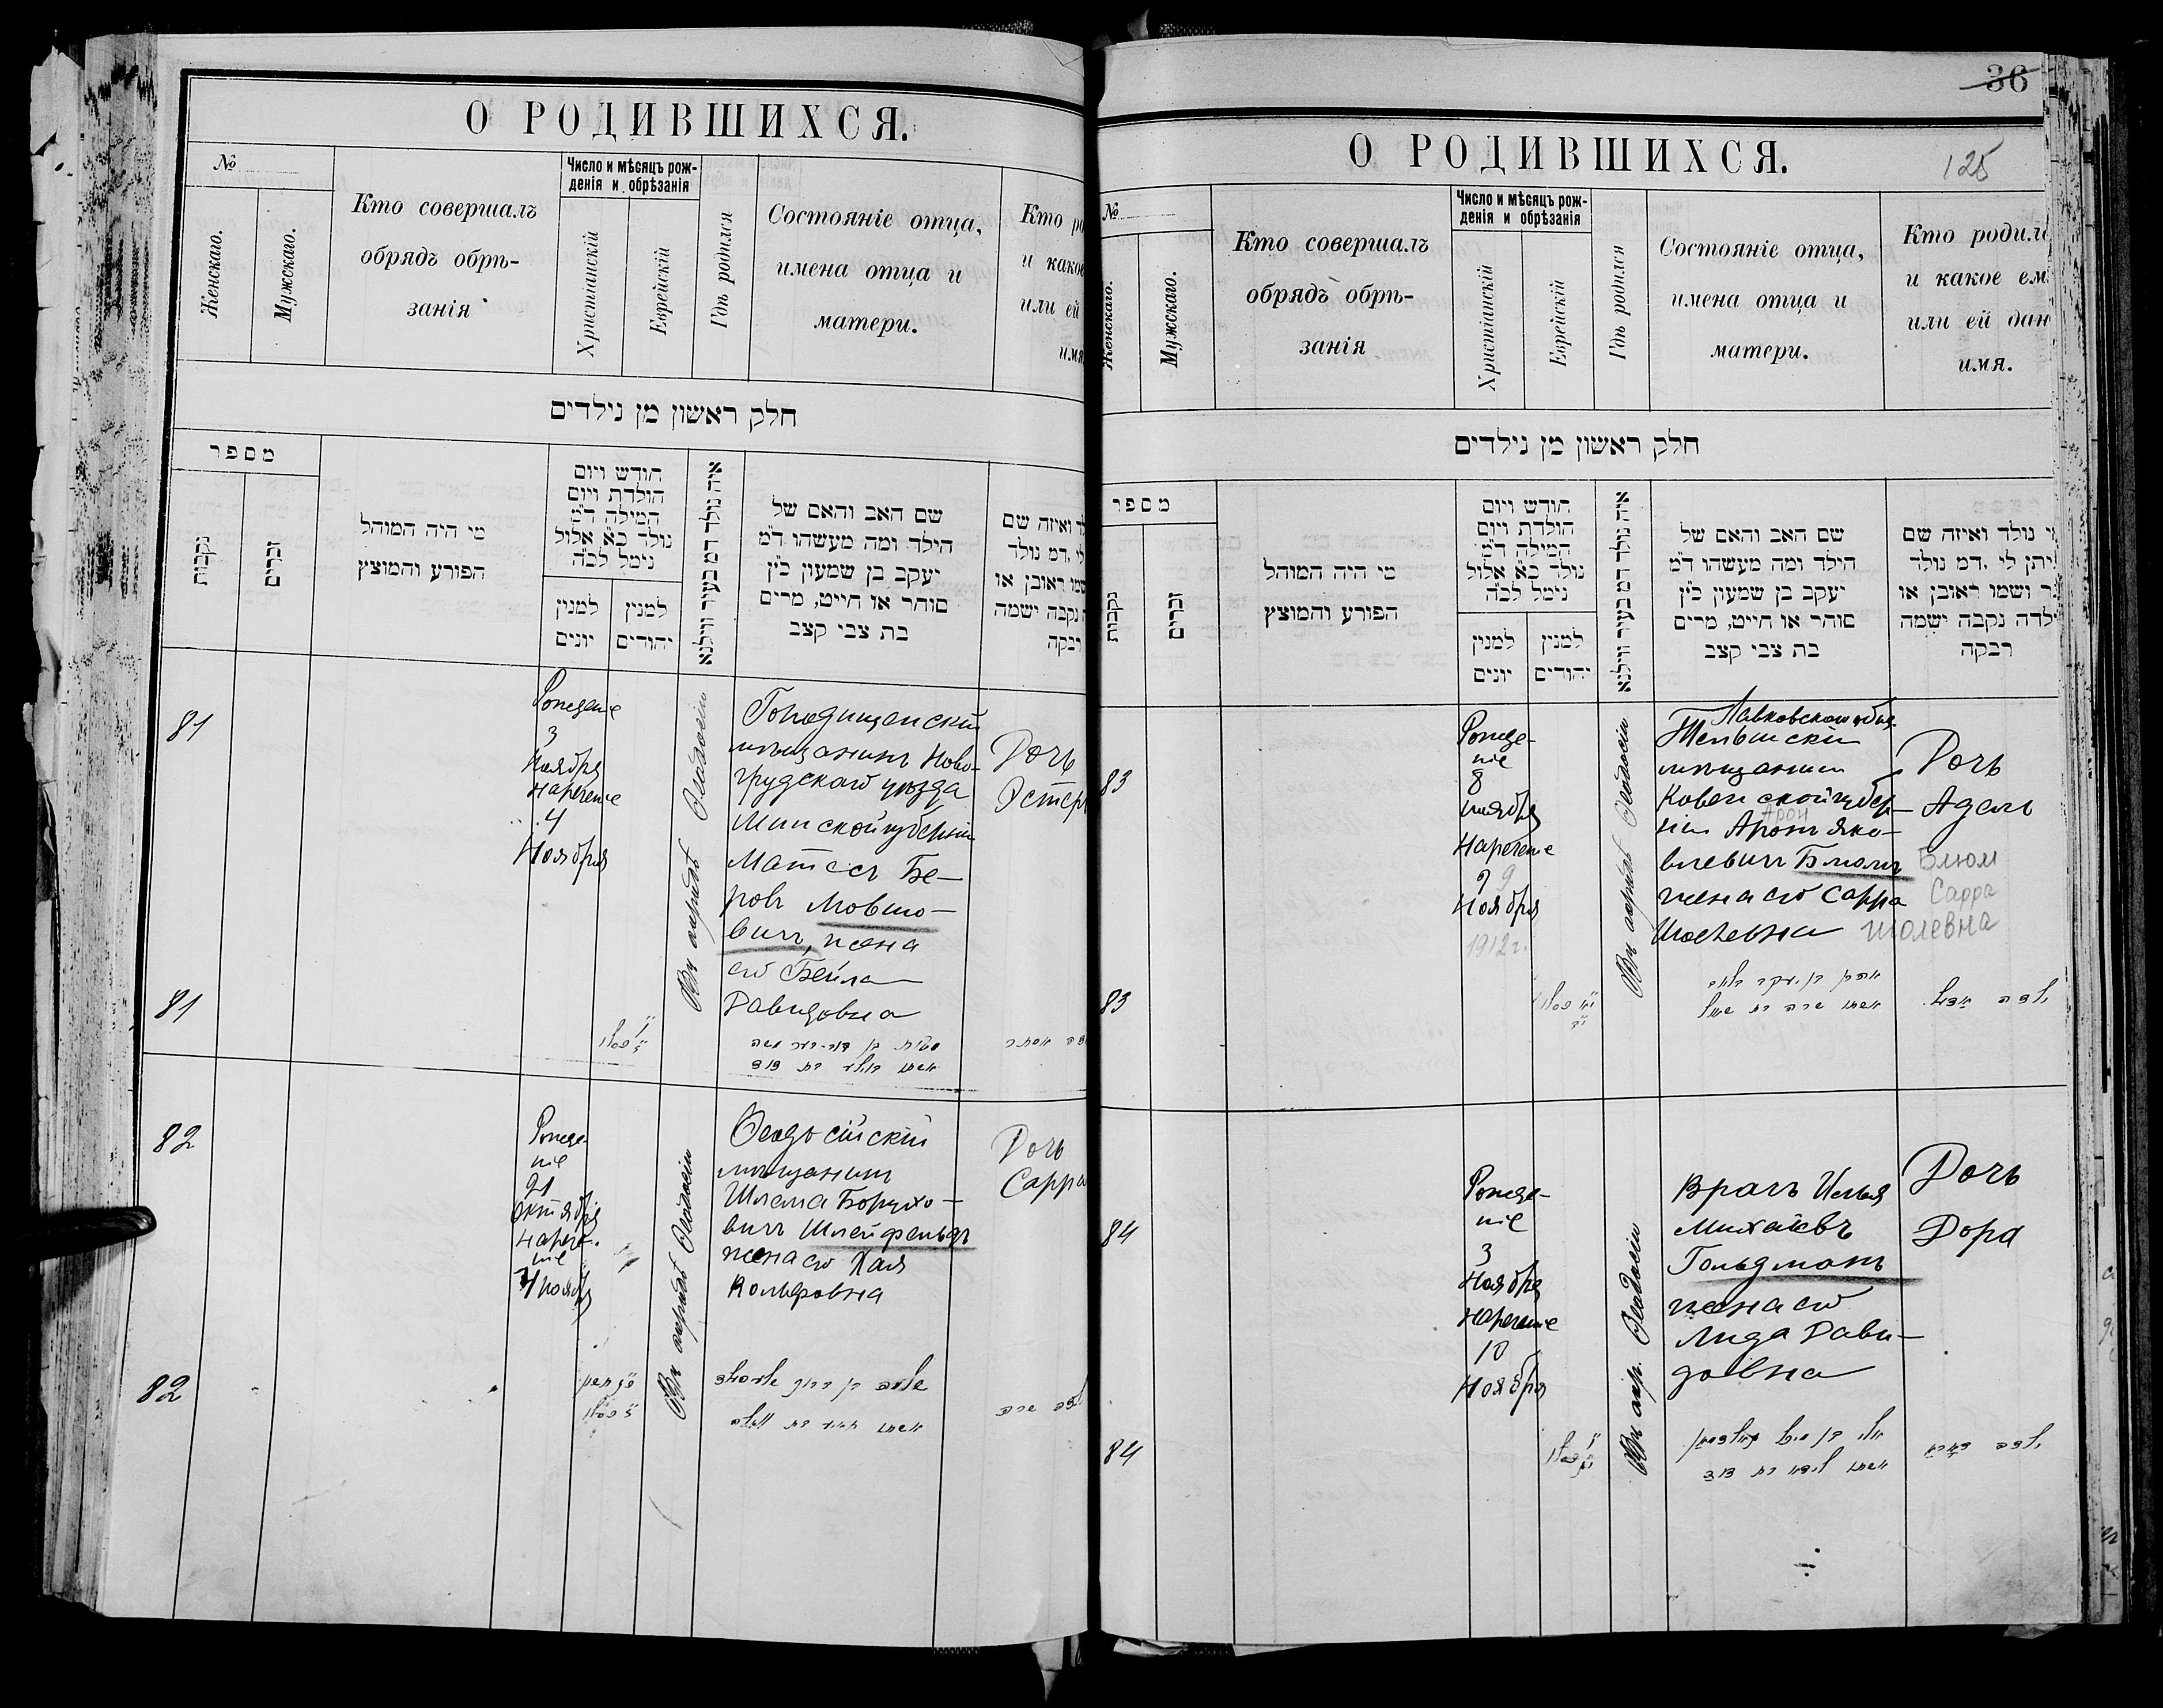 О РОДИВШИХСЯ.
№
Женскаго.
Мужскаго.
Кто совершалъ
обрядъ обрѣ-
занія
Число и мѣсяцъ рож-
денія и обрѣзанія
Христіанскій
Еврейскій
Гдѣ родился
Состояніе отца,
имена отца и
матери.
Кто ро
и какое
или ей
имя
חלק ראשון מן נילדים
מספר
נקבות
זכרים
מי היה המוהל
הפורע והמוצץ
חודש ויום
הולדת ויום
המילה ד״מ
נולד כ״א אלול
נימל לכ״ה
למנין
יונים
למנין
יהודים
איה נולד דמ בעיר ווילנא
שם האב והאם של
הילד ומה מעשהו ד״מ
יעקב בן שמעון כ״ץ
סוחר או חייט, מרים
בת צבי קצב
לד ואיזה שם
לי .דמ נולד
שמו ראובן או
נקבה ישמה
רבקה
81
Рождение
3
Ноября
наречение
4
Ноября
Въ городѣ Ѳеодосіи
Городищенскій
мѣщанинъ Ново-
грудскаго уѣзда
Минской губерніи
Матесъ Бе-
ровъ Мовшо-
вичъ, жена
его Бейла
Давидовна
Дочь
Эстер
81
82
Рожде-
ніе
21
Октября
нарече-
ніе
4 ноября
Въ городѣ Ѳеодосіи
Ѳеодосійскій
мѣщанинъ
Шлема Борухо-
вичъ Шлейфельдъ
жена его Хая
Вольфовна
Дочь
Сарра
82
36
О РОДИВШИХСЯ.
125
№
Женскаго.
Мужскаго.
Кто совершалъ
обрядъ обрѣ-
занія
Число и мѣсяцъ рож-
денія и обрѣзанія
Христіанскій
Еврейскій
Гдѣ родился
Состояніе отца,
имена отца и
матери.
Кто родилс
и какое ем
или ей дан
имя.
חלק ראשון מן נילדים
מספר
נקבות
זכרים
מי היה המוהל
הפורע והמוצץ
חודש ויום
הולדת ויום
המילה ד״מ
נולד כ״א אלול
נימל לכ״ה
למנין
יונים
למנין
יהודים
איה נולד דמ בעיר ווילנא
שם האב והאם של
הילד ומה מעשהו ד״מ
יעקב בן שמעון כ״ץ
סוחר או חייט, מרים
בת צבי קצב
י נולד ואיזה שם
יתן לי .דמ נולד
ר ושמו ראובן או
ילדה נקבה ישמה
רבקה
83
Рожде-
ніе
8
ноября
Наречение
9 9
Ноября
1912 г.
Въ городѣ Ѳеодосіи
Лавковскаго общ.
Тельшскій
мѣщанин
Ковенской губер-
Арон
ніи Аронъ Яко-
влевичъ Блюмъ
жена его Сарра
Шолевна
Дочь
Адель
Блюм
Сарра
Шолевна
83
84
Рожде-
ніе
3
Ноября
Наречение
10
Ноября
Въ гор. Ѳеодосіи
Врачъ Илья
Михаевъ
Гольдманъ
жена его
Лида Дави-
довна
Дочь
Дора
84